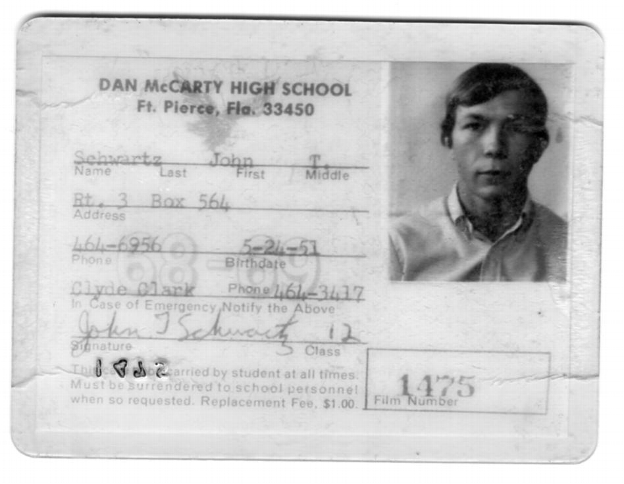 DAN McCARTY HIGH SCHOOL
Ft. Pierce, Fla. 33450
Schwartz John T.
Name Last First Middle
Rt. 3 Box 564
Address
464-6956 5-24-51
Phone Birthdate
68-69
Clyde Clark Phone 464-3417
In Case of Emergency Notify the Above
John T Schwartz 12
Signature Class
This carried by student at all times.
Must be surrendered to school personnel
when so requested. Replacement Fee, $1.00.
1475
Film Number